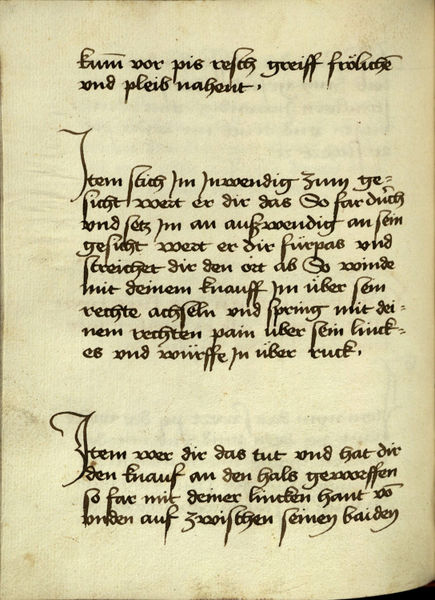 kum̄ vor pis resch greiff frölichē
und pleib nahent .
Item stich Im Inwendig zum ge=
sicht wert er dir das So far durch
und setz im an außwendig an sein
gesicht wert er dir fürpas und
streichet dir den ort ab So winde
mit deinem knauff Im über sein
rechte achseln und spring mit dei=
nem rechten pain über sein linck=
es und würffe In über ruck .
Item wer dir das tut und hat dir
den knauf an den hals geworffen
so far mit deiner lincken hant vō
unden auf zwischen seinen baiden